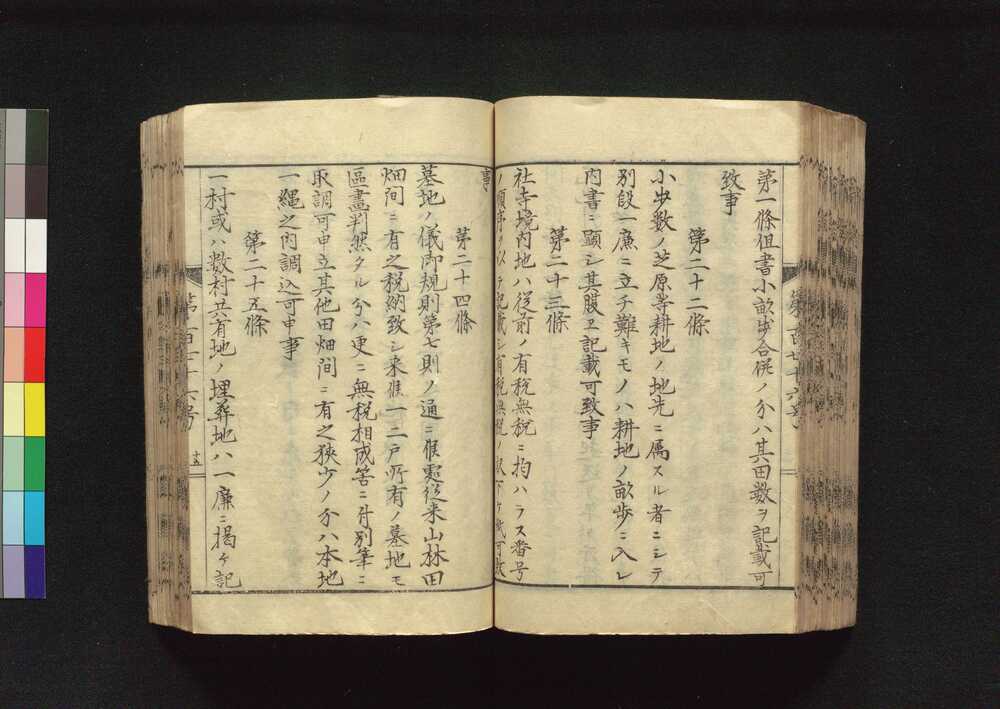 第一條但書小畝歩合併ノ分ハ其田数ヲ記載可
致事
第二十二條
小歩数ノ芝原等耕地ノ地先ニ属スル者ニシテ
別段一廉ニ立チ難キモノハ耕地ノ畝歩ニ入レ
内書ニ顕シ其腹ヱ記載可致事
第二十三條
社寺境内地ハ従前ノ有税無税ニ拘ハラス番号
ノ順序ヲ以テ記載シ有税無税ノ
事
第二十四條
墓地ノ儀御規則第七則ノ通ニ候処従来山林田
畑間ニ有之税納致シ来候一二戸所有ノ墓地モ
區畫判然タル分ハ更ニ無税相成筈ニ付別筆ニ
取調可申立其他田畑間ニ有之狭少ノ分ハ本地
一縄之内調込可申事
第二十五條
一村或ハ数村共有地ノ埋葬地ハ一廉ニ掲ケ記
十五